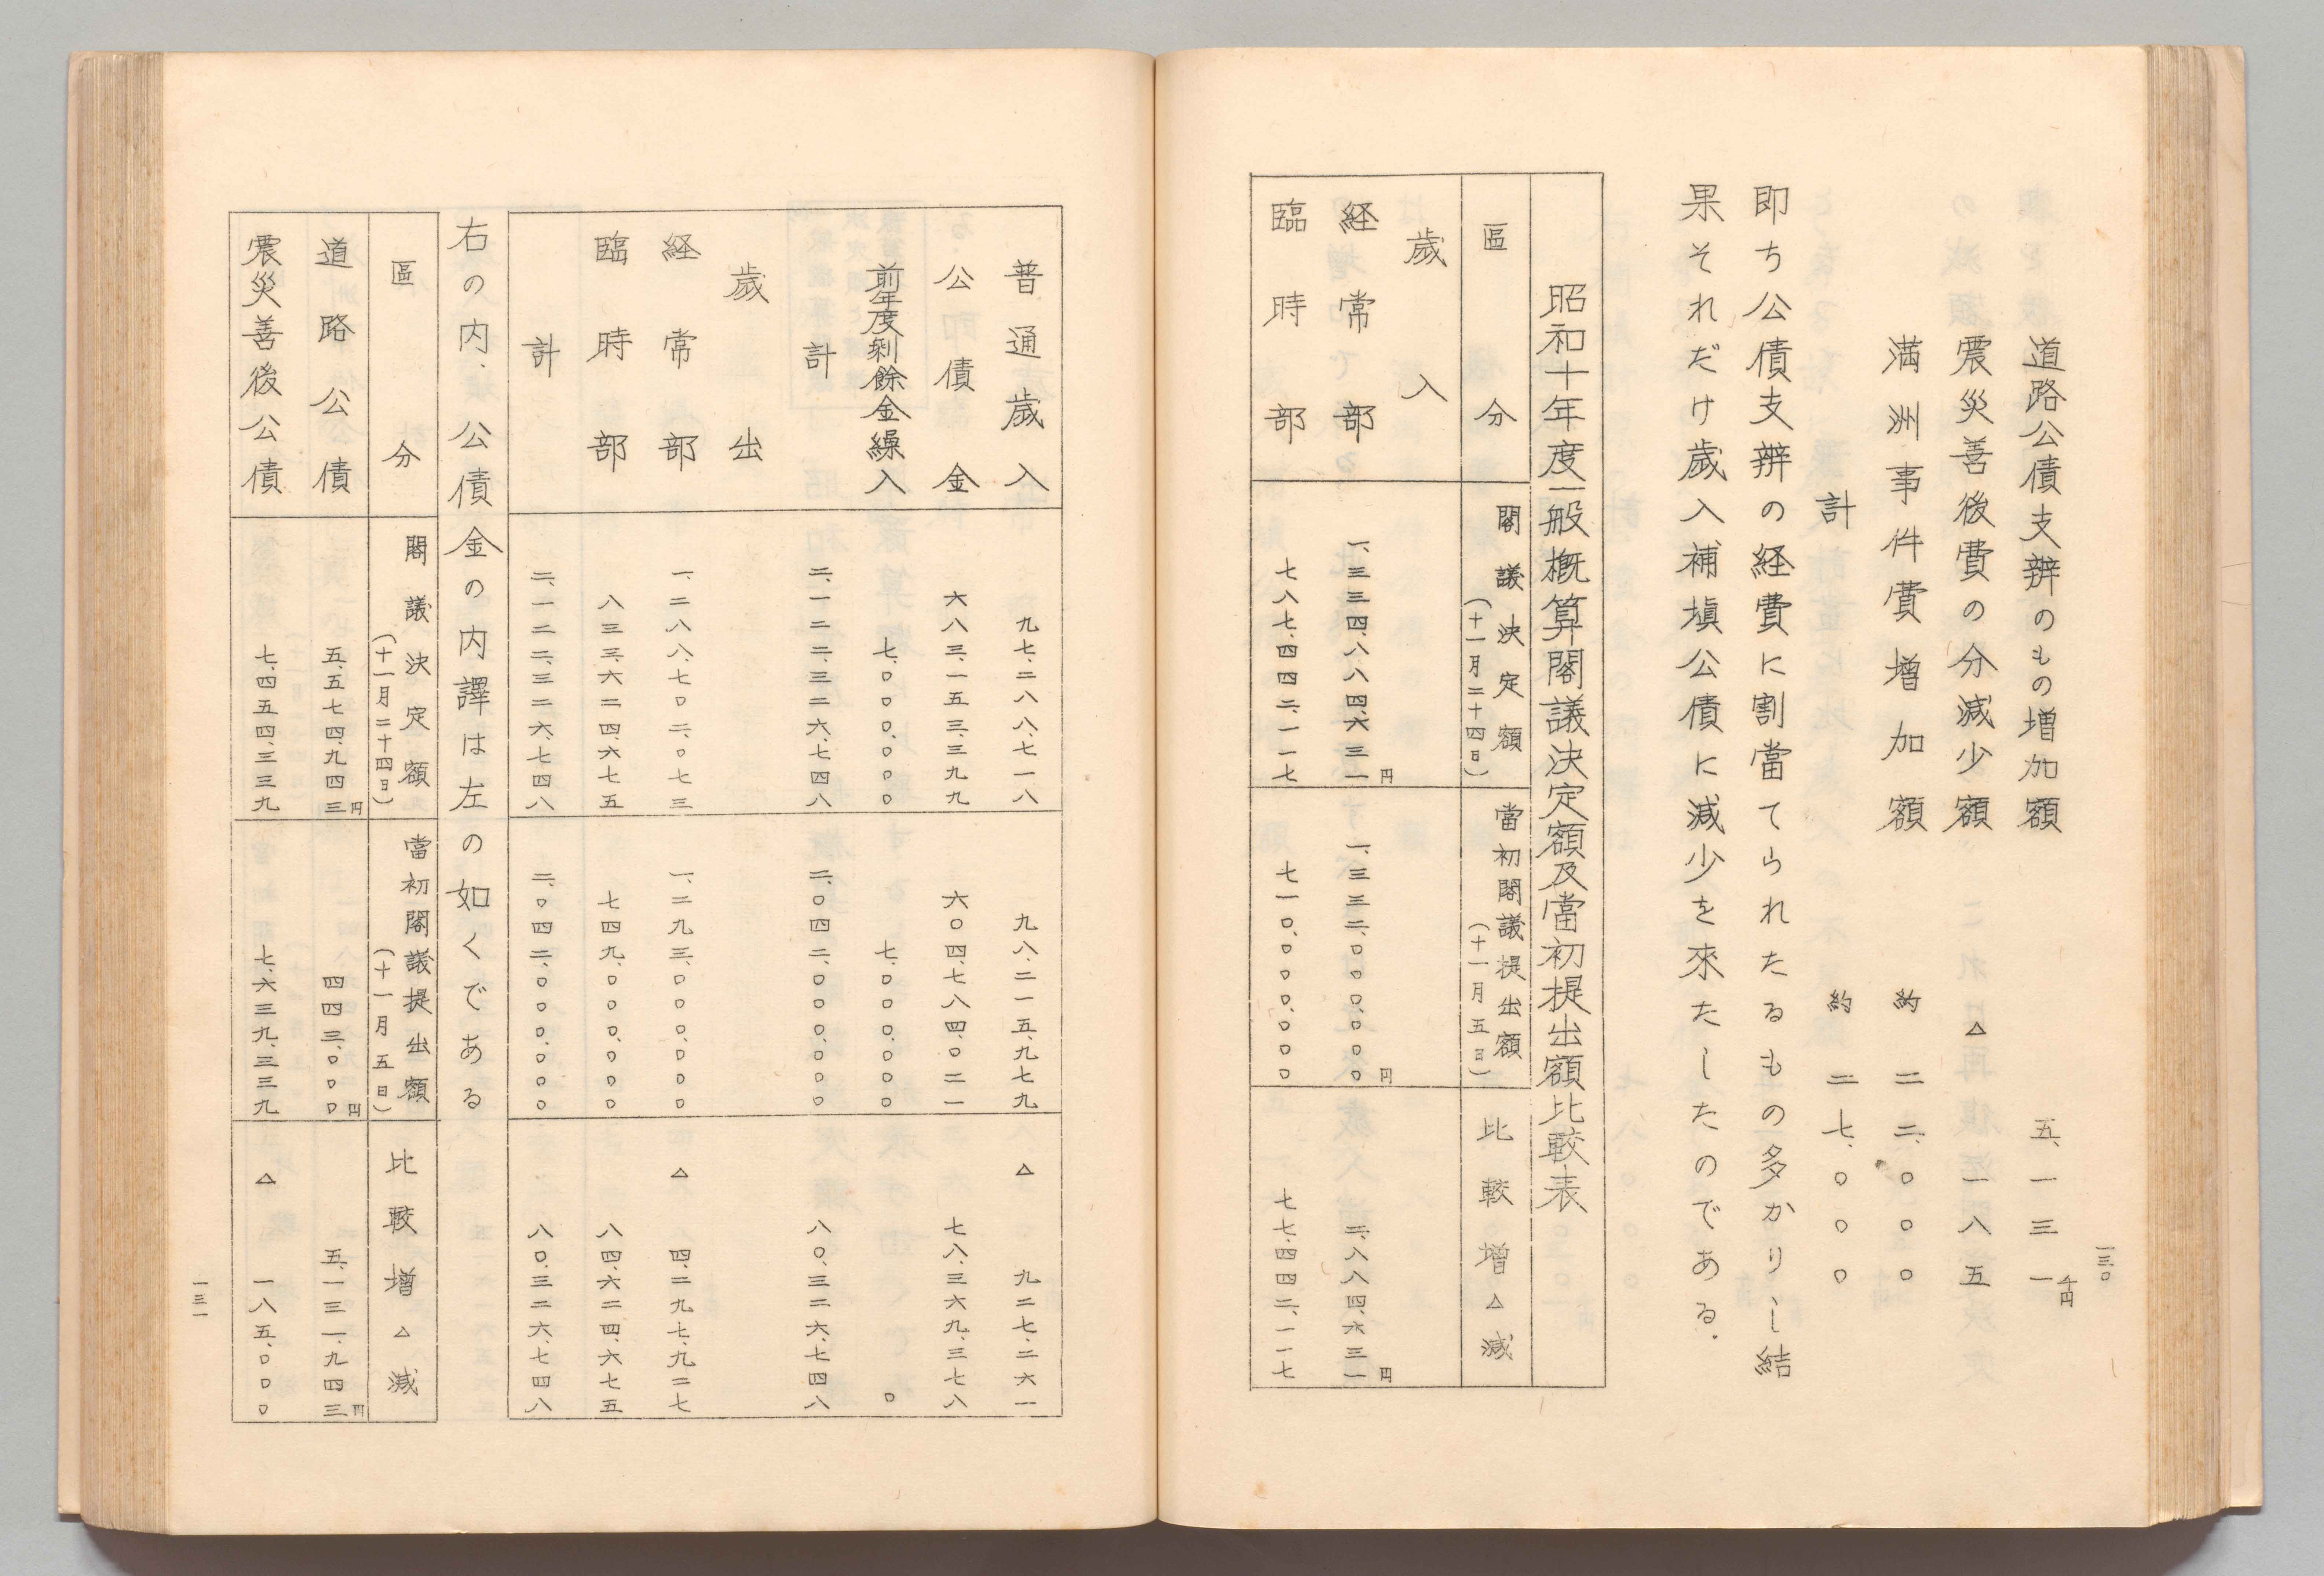 道路公債支辨のもの増加額　五、一三一千円
震災善後費の分減少額　△一八五
満洲事件費増加額　約二二、〇〇〇
計　約二七、〇〇〇
即ち公債支辨の経費に割當てられたるもの多かりし結
果それだけ歳入補塡公債に減少を來たしたのである.
昭和十年度一般概算閣議決定額及當初提出額比較表
區分　閣議決定額(十一月二十四日)　當初閣議提出額(十一月五日)　比較増△減
歳入
経常部　一、三三四、八八四、六三一円　一、三三二、〇〇〇、〇〇〇円　二、八八四、六三一円
臨時部　七八七、四四二、一一七　七一〇、〇〇〇、〇〇〇　七七、四四二、一一七
一三〇
普通歳入　九七、二八八、七一八　九八、二一五、九七九　△九二七、二六一
公債金　六八三、一五三、三九九　六〇四、七八四、〇二一　七八、三六九、三七八
前年度剰餘金繰入　七、〇〇〇、〇〇〇　七、〇〇〇、〇〇〇　〇
計　二、一二二、三二六、七四八　二、〇四二、〇〇〇、〇〇〇　八〇、三二六、七四八
歳出
経常部　一、二八八、七〇二、〇七三　一、二九三、〇〇〇、〇〇〇　△四、二九七、九二七
臨時部　八三三、六二四、六七五　七四九、〇〇〇、〇〇〇　八四、六二四、六七五
計　二、一二二、三二六、七四八　二、〇四二、〇〇〇、〇〇〇　八〇、三二六、七四八
右の内、公債金の内譯は左の如くである
區分　閣議決定額(十一月二十四日)　當初閣議提出額(十一月五日)　比較増△減
道路公債　五、五七四、九四三円　四四三、〇〇〇円　五、一三一、九四三円
震災善後公債　七、四五四、三三九　七、六三九、三三九　△一八五、〇〇〇
一三一